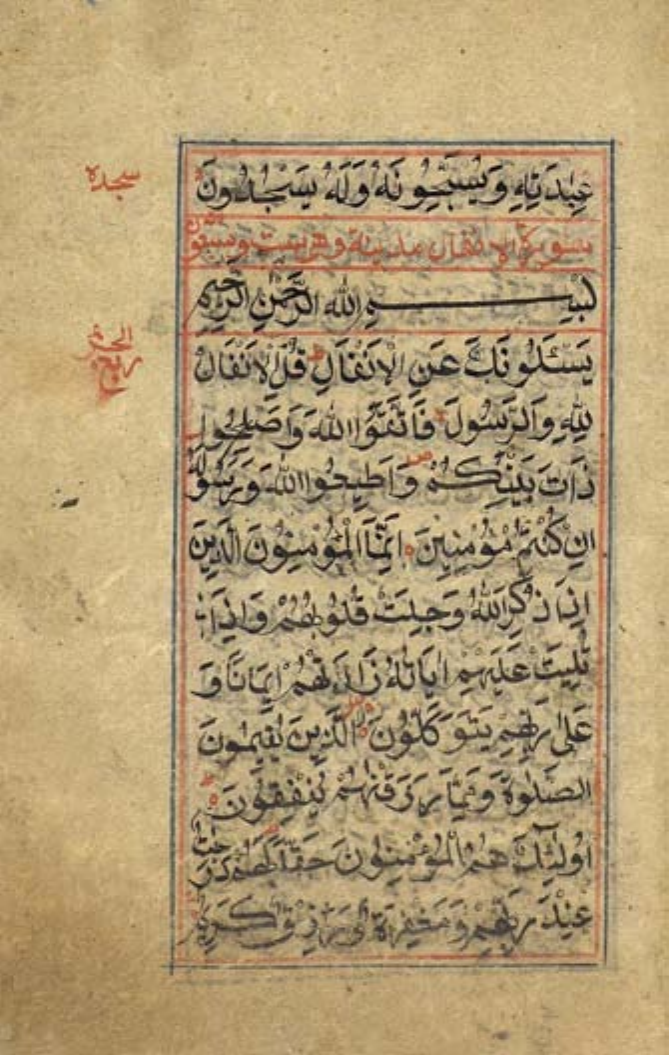 عِبَادَتِهِ وَيُسَبِّحُونَهُ وَلَهُ يَسْجُدُونَ
سجده
سورة الانفال مدنية وهي ست وسبعون
بِسْمِ اللهِ الرَّحْمٰنِ الرَّحِيمِ
يَسْئَلُونَكَ عَنِ الْاَنْفَالِ قُلِ الْاَنْفَالُ
الحزب
ربع
لِلّٰهِ وَالرَّسُولِ فَاتَّقُوا اللهَ وَاَصْلِحُوا
ذَاتَ بَيْنِكُمْ وَاَطِيعُوا اللهَ وَرَسُولَهُ
اِنْ كُنْتُمْ مُؤْمِنِينَ اِنَّمَا الْمُؤْمِنُونَ الَّذِينَ
اِذَا ذُكِرَ اللهُ وَجِلَتْ قُلُوبُهُمْ وَاِذَا
تُلِيَتْ عَلَيْهِمْ اٰيَاتُهُ زَادَتْهُمْ اِيمَانًا وَ
عَلٰى رَبِّهِمْ يَتَوَكَّلُونَ الَّذِينَ يُقِيمُونَ
الصَّلٰوةَ وَمِمَّا رَزَقْنَاهُمْ يُنْفِقُونَ
اُولٰئِكَ هُمُ الْمُؤْمِنُونَ حَقًّا لَهُمْ دَرَجَاتٌ
عِنْدَ رَبِّهِمْ وَمَغْفِرَةٌ وَرِزْقٌ كَرِيمٌ